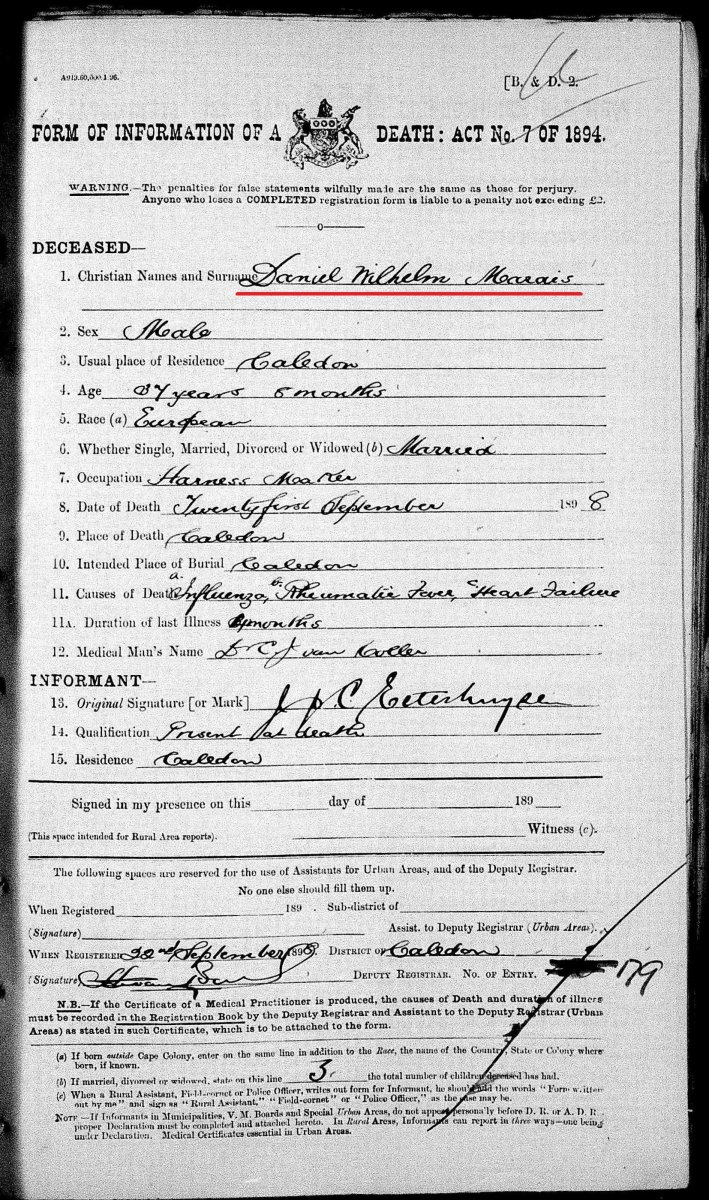 A919.60,500.1.96.
[B. & D. 2.
FORM OF INFORMATION OF A DEATH: ACT No. 7 OF 1894.
WARNING.—The penalties for false statements wilfully made are the same as those for perjury.
Anyone who loses a COMPLETED registration form is liable to a penalty not exceeding £2.
DECEASED—
1. Christian Names and Surname Daniel Wilhelm Marais
2. Sex Male
3. Usual place of Residence Caledon
4. Age 37 years months
5. Race (a) European
6. Whether Single, Married, Divorced or Widowed (b) Married
7. Occupation Harness Maker
8. Date of Death Twenty first September 1898
9. Place of Death Caledon
10. Intended Place of Burial Caledon
11. Causes of Death a. Influenza, b. Rheumatic Fever, c. Heart Failure
11A. Duration of last Illness months
12. Medical Man's Name Dr C J van
INFORMANT—
13. Original Signature [or Mark] J P C
14. Qualification Present at death
15. Residence Caledon
Signed in my presence on this day of 189
Witness (c).
(This space intended for Rural Area reports).
The following spaces are reserved for the use of Assistants for Urban Areas, and of the Deputy Registrar.
No one else should fill them up.
When Registered 189 . Sub-district of
(Signature) Assist. to Deputy Registrar (Urban Areas).
WHEN REGISTERED 22nd September 1898. DISTRICT OF Caledon
(Signature) DEPUTY REGISTRAR. NO. OF ENTRY. 179
N.B.—If the Certificate of a Medical Practitioner is produced, the causes of Death and duration of illness
must be recorded in the Registration Book by the Deputy Registrar and Assistant to the Deputy Registrar (Urban
Areas) as stated in such Certificate, which is to be attached to the form.
(a) If born outside Cape Colony, enter on the same line in addition to the Race, the name of the Country, State or Colony where
born, if known.
(b) If married, divorced or widowed, state on this line 3 the total number of children deceased has had.
(c) When a Rural Assistant, Field-cornet or Police Officer, writes out form for Informant, he should add the words "Form written
out by me" and sign as "Rural Assistant," "Field-cornet" or "Police Officer," as the case may be.
NOTE—If Informants in Municipalities, V. M. Boards and Special Urban Areas, do not appear personally before D. R. or A. D. R.
proper Declaration must be completed and attached hereto. In Rural Areas, Informants can report in three ways—one being
under Declaration. Medical Certificates essential in Urban Areas.